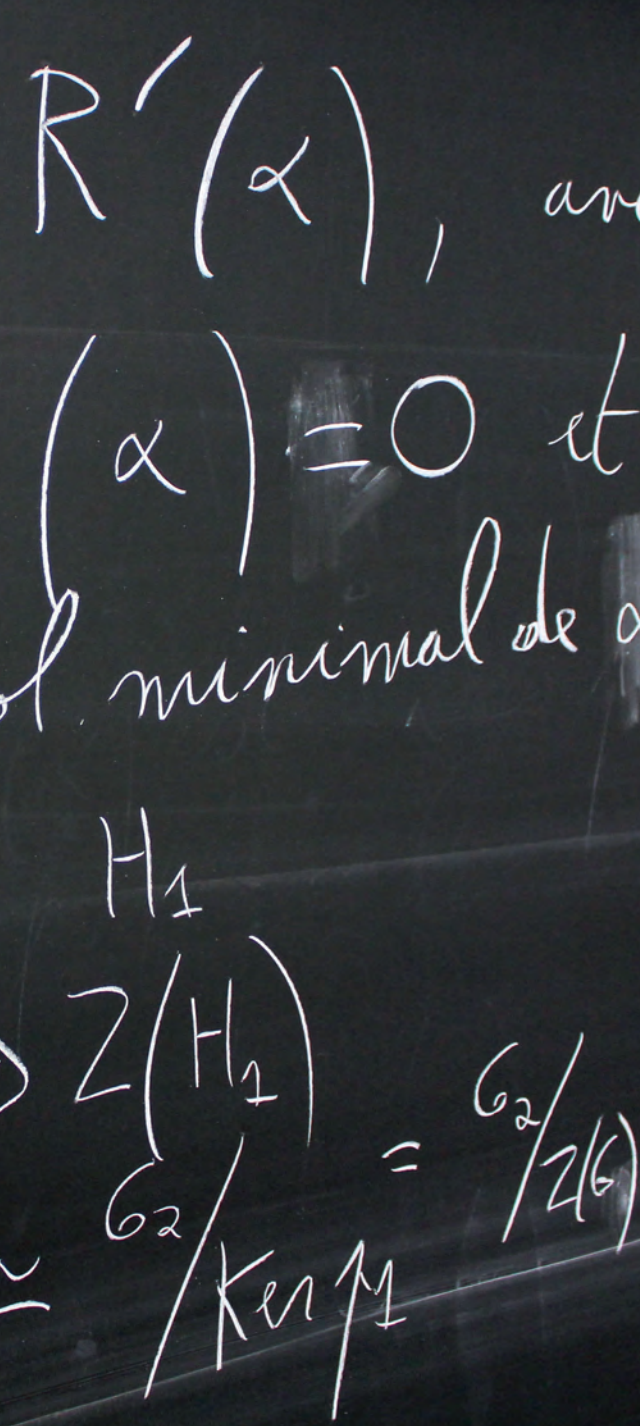 R′(α),
(α) = 0 et
minimal de
H₁
Z(H₁)
G₂/Ker p₁ = G₂/Z(G)